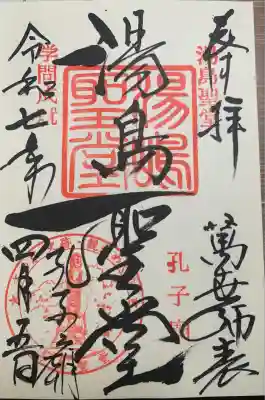 奉拝
湯島聖堂
萬世師表
孔子廟
湯島聖堂
湯島聖堂
孔子廟
学問成就
令和七年
四月五日